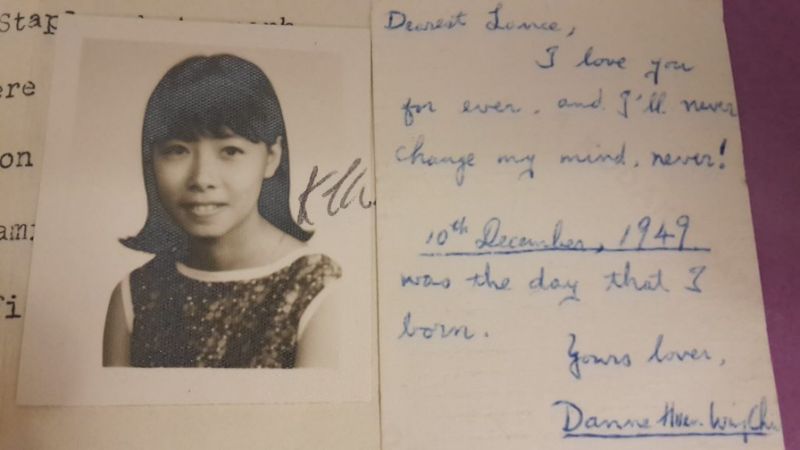 Stap
ere
on
am
fi
Dearest Lance,
I love you
for ever. and I'll never
change my mind, never!
10th December, 1949
was the day that I
born.
Yours lover,
Danne